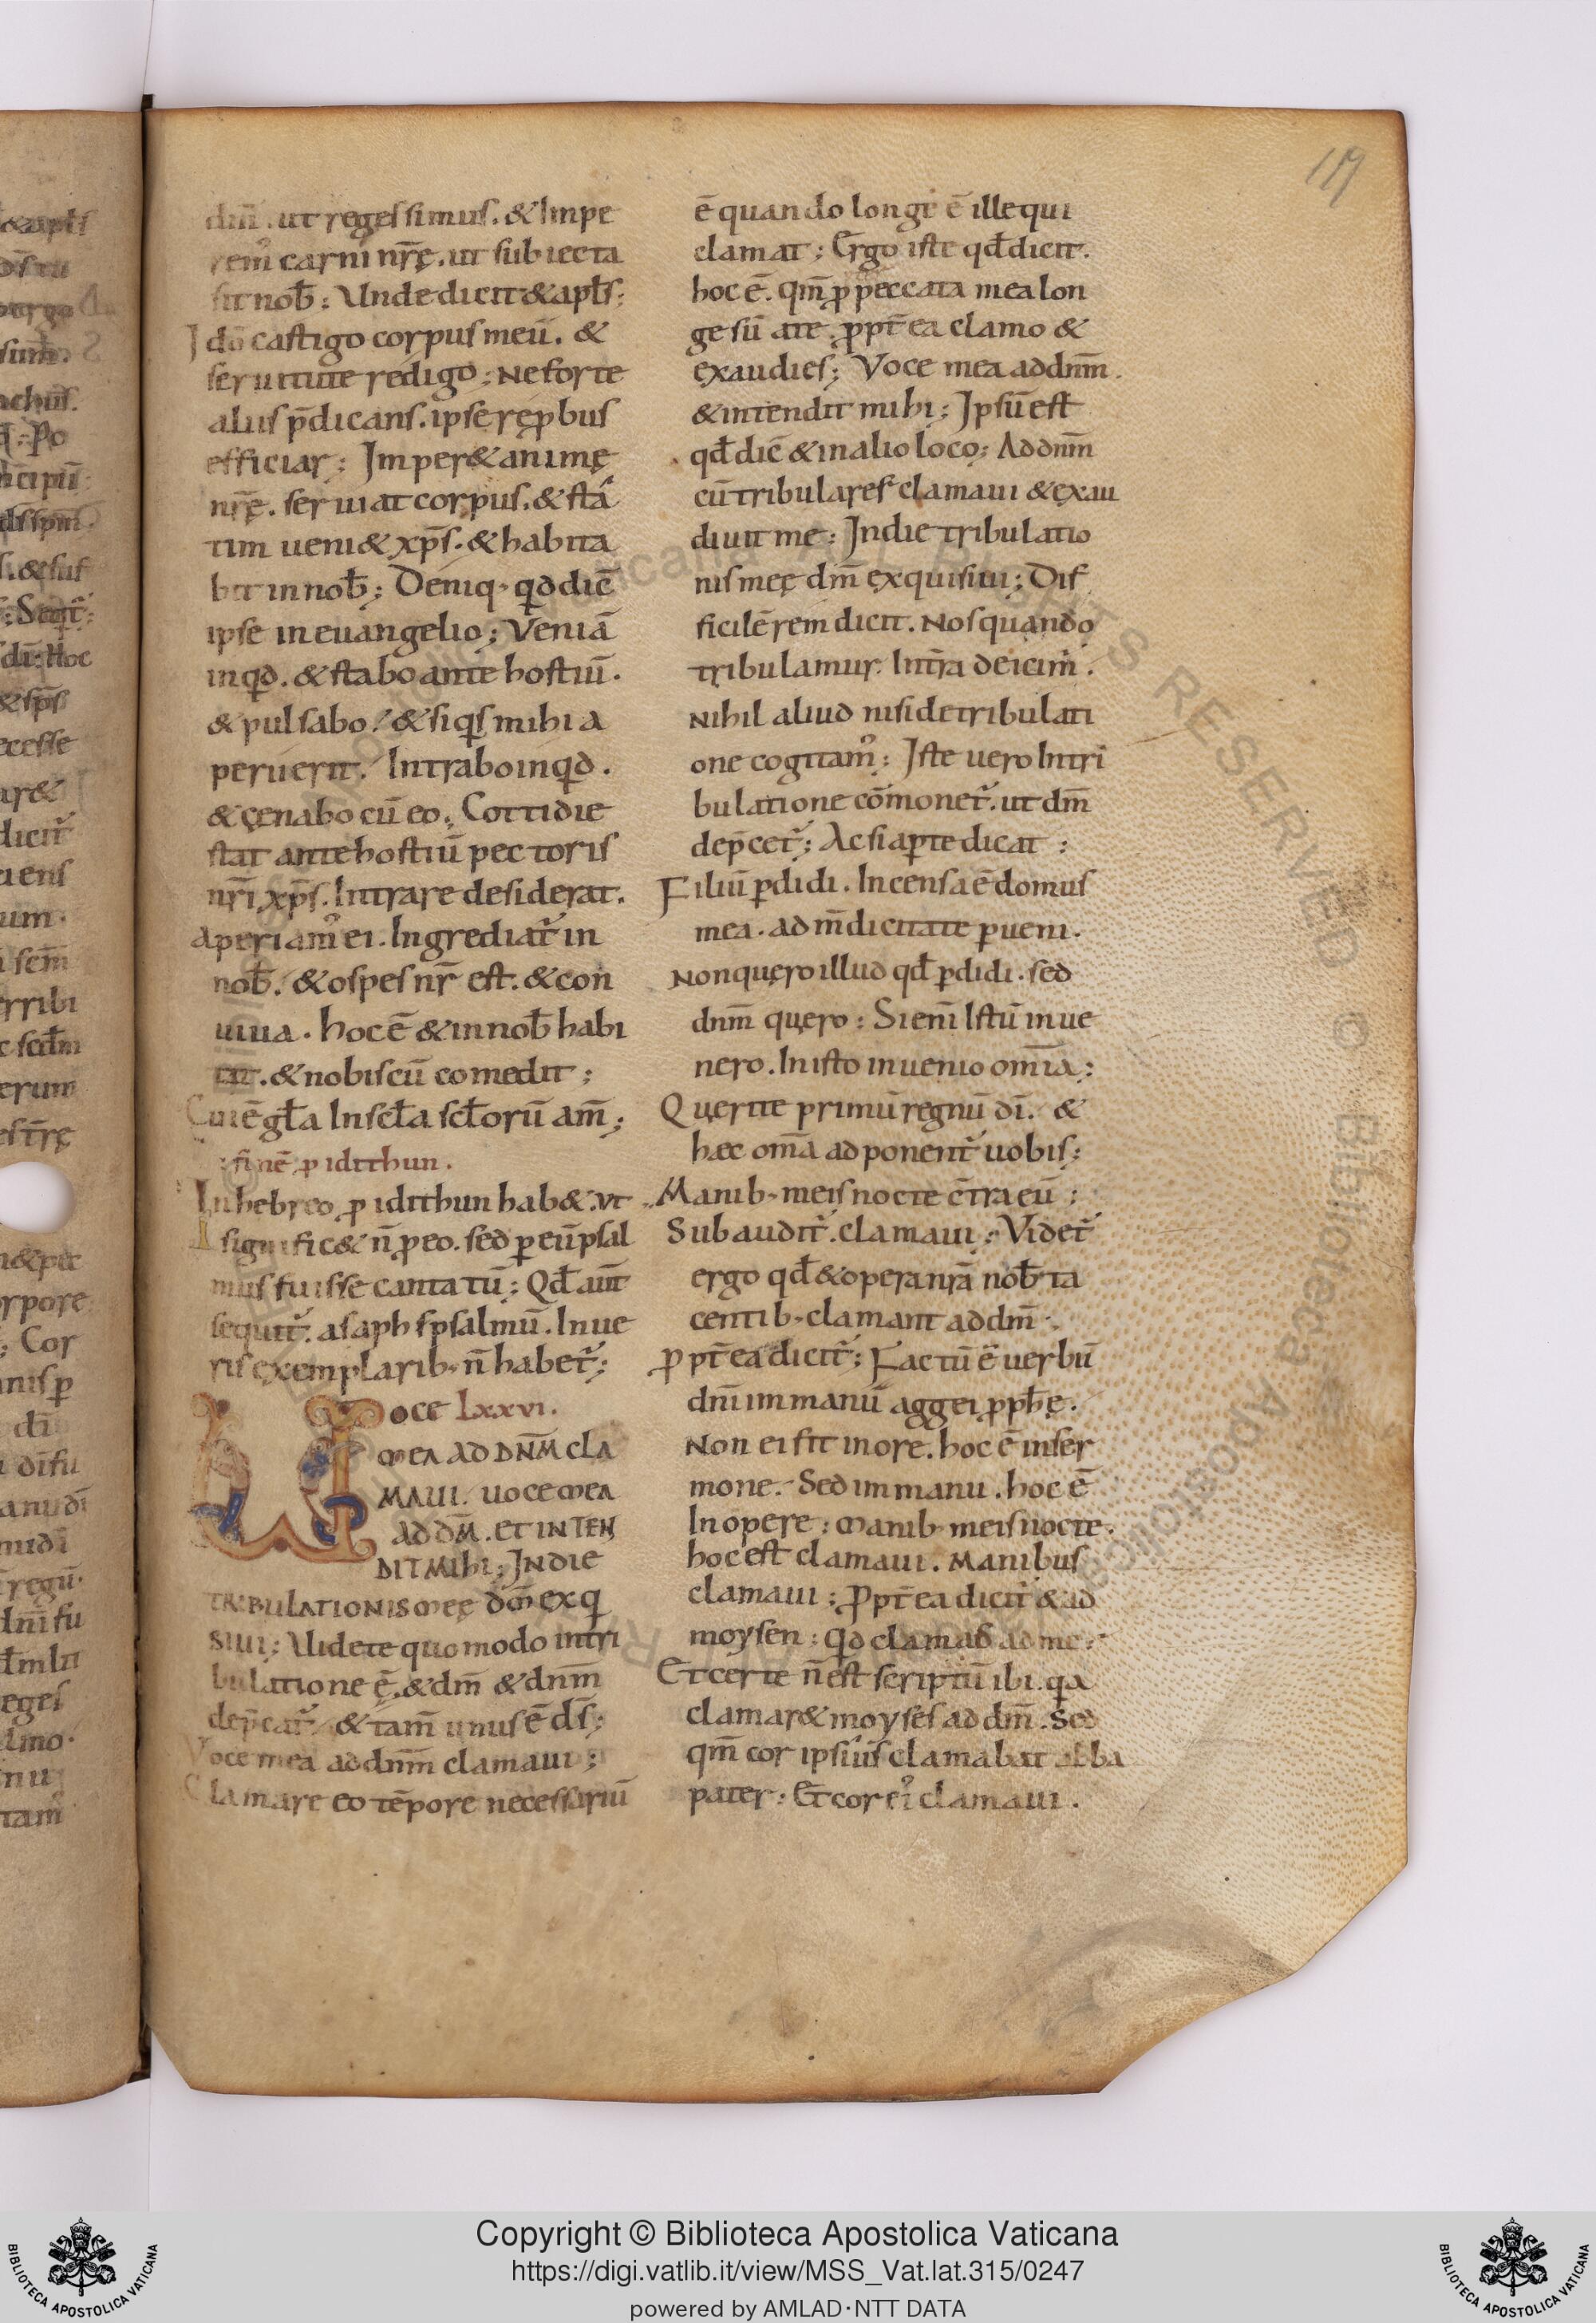 119
dm̄. ut reges simus. & Impe
remꝰ carni nr̄ę. ut subiecta
sit nob̄: Unde dicit & apl̄s:
Ideo castigo corpus meū. &
seruitute redigo; Ne forte
aliis p̄dicans. ipse rep̱bus
efficiar: Imper& animę
nr̄ę. seruiat corpus. & stā
tim ueni& xp̄s. & habita
bit in nob̄; Deniq· qd dic̄
ipse in euangelio; Veniā
inqd. & stabo ante hostiū.
& pulsabo! & siqs mihi a
peruerit. Intrabo inqd.
& cęnabo cū eo; Cottidie
stat ante hostiū pectoris
nr̄i xp̄s. Intrare desiderat.
Aperiamꝰ ei. Ingrediat᷑ in
nob̄. & ospes nr̄ est. & con
uiua. hoc ē & in nob̄ habi
tat. & nobiscū comedit;
Cui ē gl̄a In scl̄a scl̄orū am̄;
: finē ꝓ idithun.
In hebreo ꝓ idithun hab&. ut
signific& n̄ ꝓ eo. sed ꝑ eū psal
mus fuisse cantatū; Qd̄ aūt
sequit᷑. asaph psalmū. In ue
ris exemplarib· n̄ habet᷑;
Uoce Lxxvi.
mea ad dn̄m cla
maui. uoce mea
ad dm̄. et inten
dit mihi; In die
tribulationis meę dm̄ exq
siui; Uidete quomodo in tri
bulatione ē. & dm̄ & dnm̄
dep̄cat᷑ & tam̄ unus ē ds̄;
Voce mea ad dnm̄ clamaui;
Clamare eo tēpore necessariū
ē quando longe ē ille qui
clamat; Ergo iste qd̄ dicit.
hoc ē. qm̄ ꝓ peccata mea lon
ge sū a te. ꝓpt̄ ea clamo &
exaudies; Voce mea ad dnm̄.
& intendit mihi; Ipsū est
qd̄ dic̄ & in alio loco; Ad dnm̄
cū tribulares clamaui & exau
diuit me: In die tribulatio
nis meę dm̄ exquisiui; Dif
ficilē rem dicit. Nos quando
tribulamur. Intr̄a deicim̄.
Nihil aliud nisi de tribulati
one cogitamꝰ; Iste uero In tri
bulatione cōmonet᷑. ut dm̄
dep̄cet᷑; Ac si aꝑte dicat:
Filiū ꝑdidi. Incensa ē domus
mea. ad m̄dicitate ꝑueni.
Non quęro illud qd̄ ꝑdidi. sed
dnm̄ quero: Si eni Istū inue
nero. In isto inuenio om̄ia;
Querite primū regnū dī. &
hæc om̄a adponent᷑ uobis;
Manib· meis nocte c̄tra eū;
Subaudit᷑. clamaui; Videt᷑
ergo qd̄ & opera nr̄a nob̄ ta
centib· clamant ad dm̄.
ꝓpt̄ ea dicit᷑; Factū ē uerbū
dn̄i in manū aggei ꝓph̄ę.
Non ei fit in ore. hoc ē in ser
mone. Sed in manu. hoc ē
In opere: Manib· meis nocte.
hoc est clamaui. Manibus
clamaui; ꝓpt̄ ea dicit᷑ & ad
moysen: qd clamas ad me;
Et certe n̄ est scriptū ibi. qa
clamar& moyses ad dm̄. Sed
qm̄ cor ipsius clamabat abba
pater: Et cor eiꝰ clamaui.
ALL RIGHTS RESERVED © Biblioteca Apostolica
Copyright © Biblioteca Apostolica Vaticana
https://digi.vatlib.it/view/MSS_Vat.lat.315/0247
powered by AMLAD·NTT DATA
BIBLIOTECA APOSTOLICA VATICANA
BIBLIOTECA APOSTOLICA VATICANA